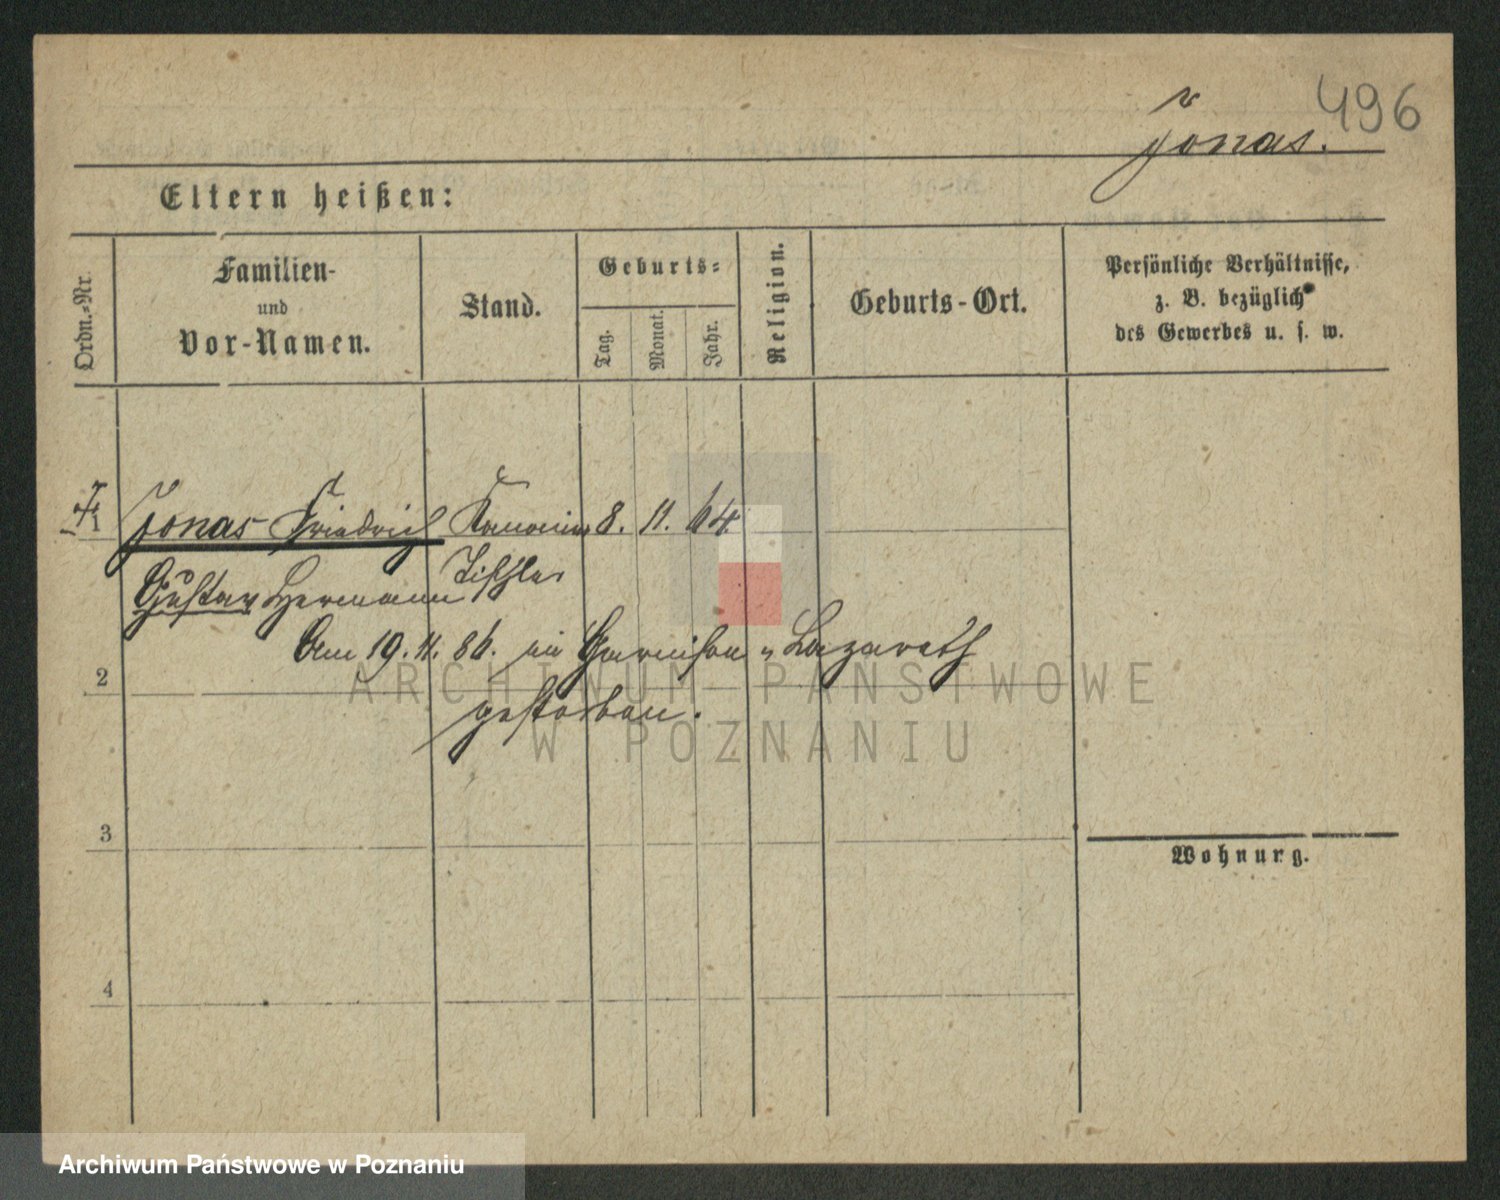 496
Jonas.
Eltern heißen:
Ordn.-Nr.
Familien-
und
Vor-Namen.
Stand.
Geburts-
Tag.
Monat.
Jahr.
Religion.
Geburts-Ort.
Persönliche Verhältnisse,
z. B. bezüglich
des Gewerbes u. s. w.
1 Jonas Friedrich Kanonier 8. 11. 64.
Gustav Hermann Tischler
Am 19. 11. 86. im Garnison-Lazareth
2
gestorben.
3
Wohnung.
4
ARCHIWUM PAŃSTWOWE
W POZNANIU
Archiwum Państwowe w Poznaniu